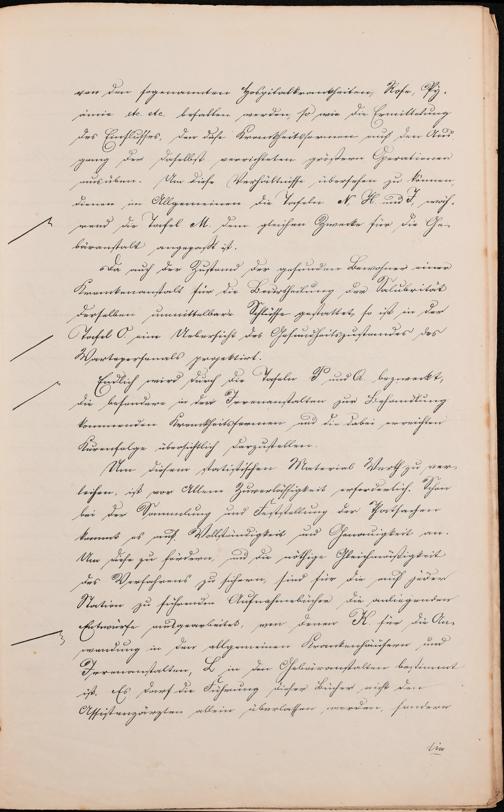 von den sogenannten Hospitalkrankheiten, Rose, Py-
ämie etc. etc. befallen werden, so wie die Ermittelung
des Einflusses, den diese Krankheitsformen auf den Aus-
gang der daselbst verrichteten größern Operationen
ausüben. Um diese Verhältnisse übersehen zu können,
dienen im Allgemeinen die Tafeln N H und I, wäh-
rend die Tafel M dem gleichen Zwecke für die Ge-
bäranstalt angepaßt ist.
Da auch der Zustand der gesunden Bewohner einer
Krankenanstalt für die Beurtheilung der Salubrität
derselben unmittelbare Schlüsse gestattet, so ist in der
Tafel O eine Uebersicht des Gesundheitszustandes des
Wartepersonals projektirt.
Endlich wird durch die Tafeln P und Q bezweckt,
die besondern in den Irrenanstalten zur Behandlung
kommenden Krankheitsformen und die dabei erreichten
Kurerfolge übersichtlich darzustellen.
Um diesem statistischen Material Werth zu ver-
leihen, ist vor Allem Zuverlässigkeit erforderlich. Schon
bei der Sammlung und Feststellung der Thatsachen
kommt es auf Vollständigkeit und Genauigkeit an.
Um diese zu fördern, und die nöthige Gleichmäßigkeit
des Verfahrens zu sichern, sind für die auf jeder
Station zu führenden Aufnahmebücher die anliegenden
Entwürfe ausgearbeitet, von denen K für die An-
wendung in den allgemeinen Krankenhäusern und
Irrenanstalten, L in den Gebäranstalten bestimmt
ist. Es darf die Führung dieser Bücher nicht den
Assistenzärzten allein überlassen werden, sondern